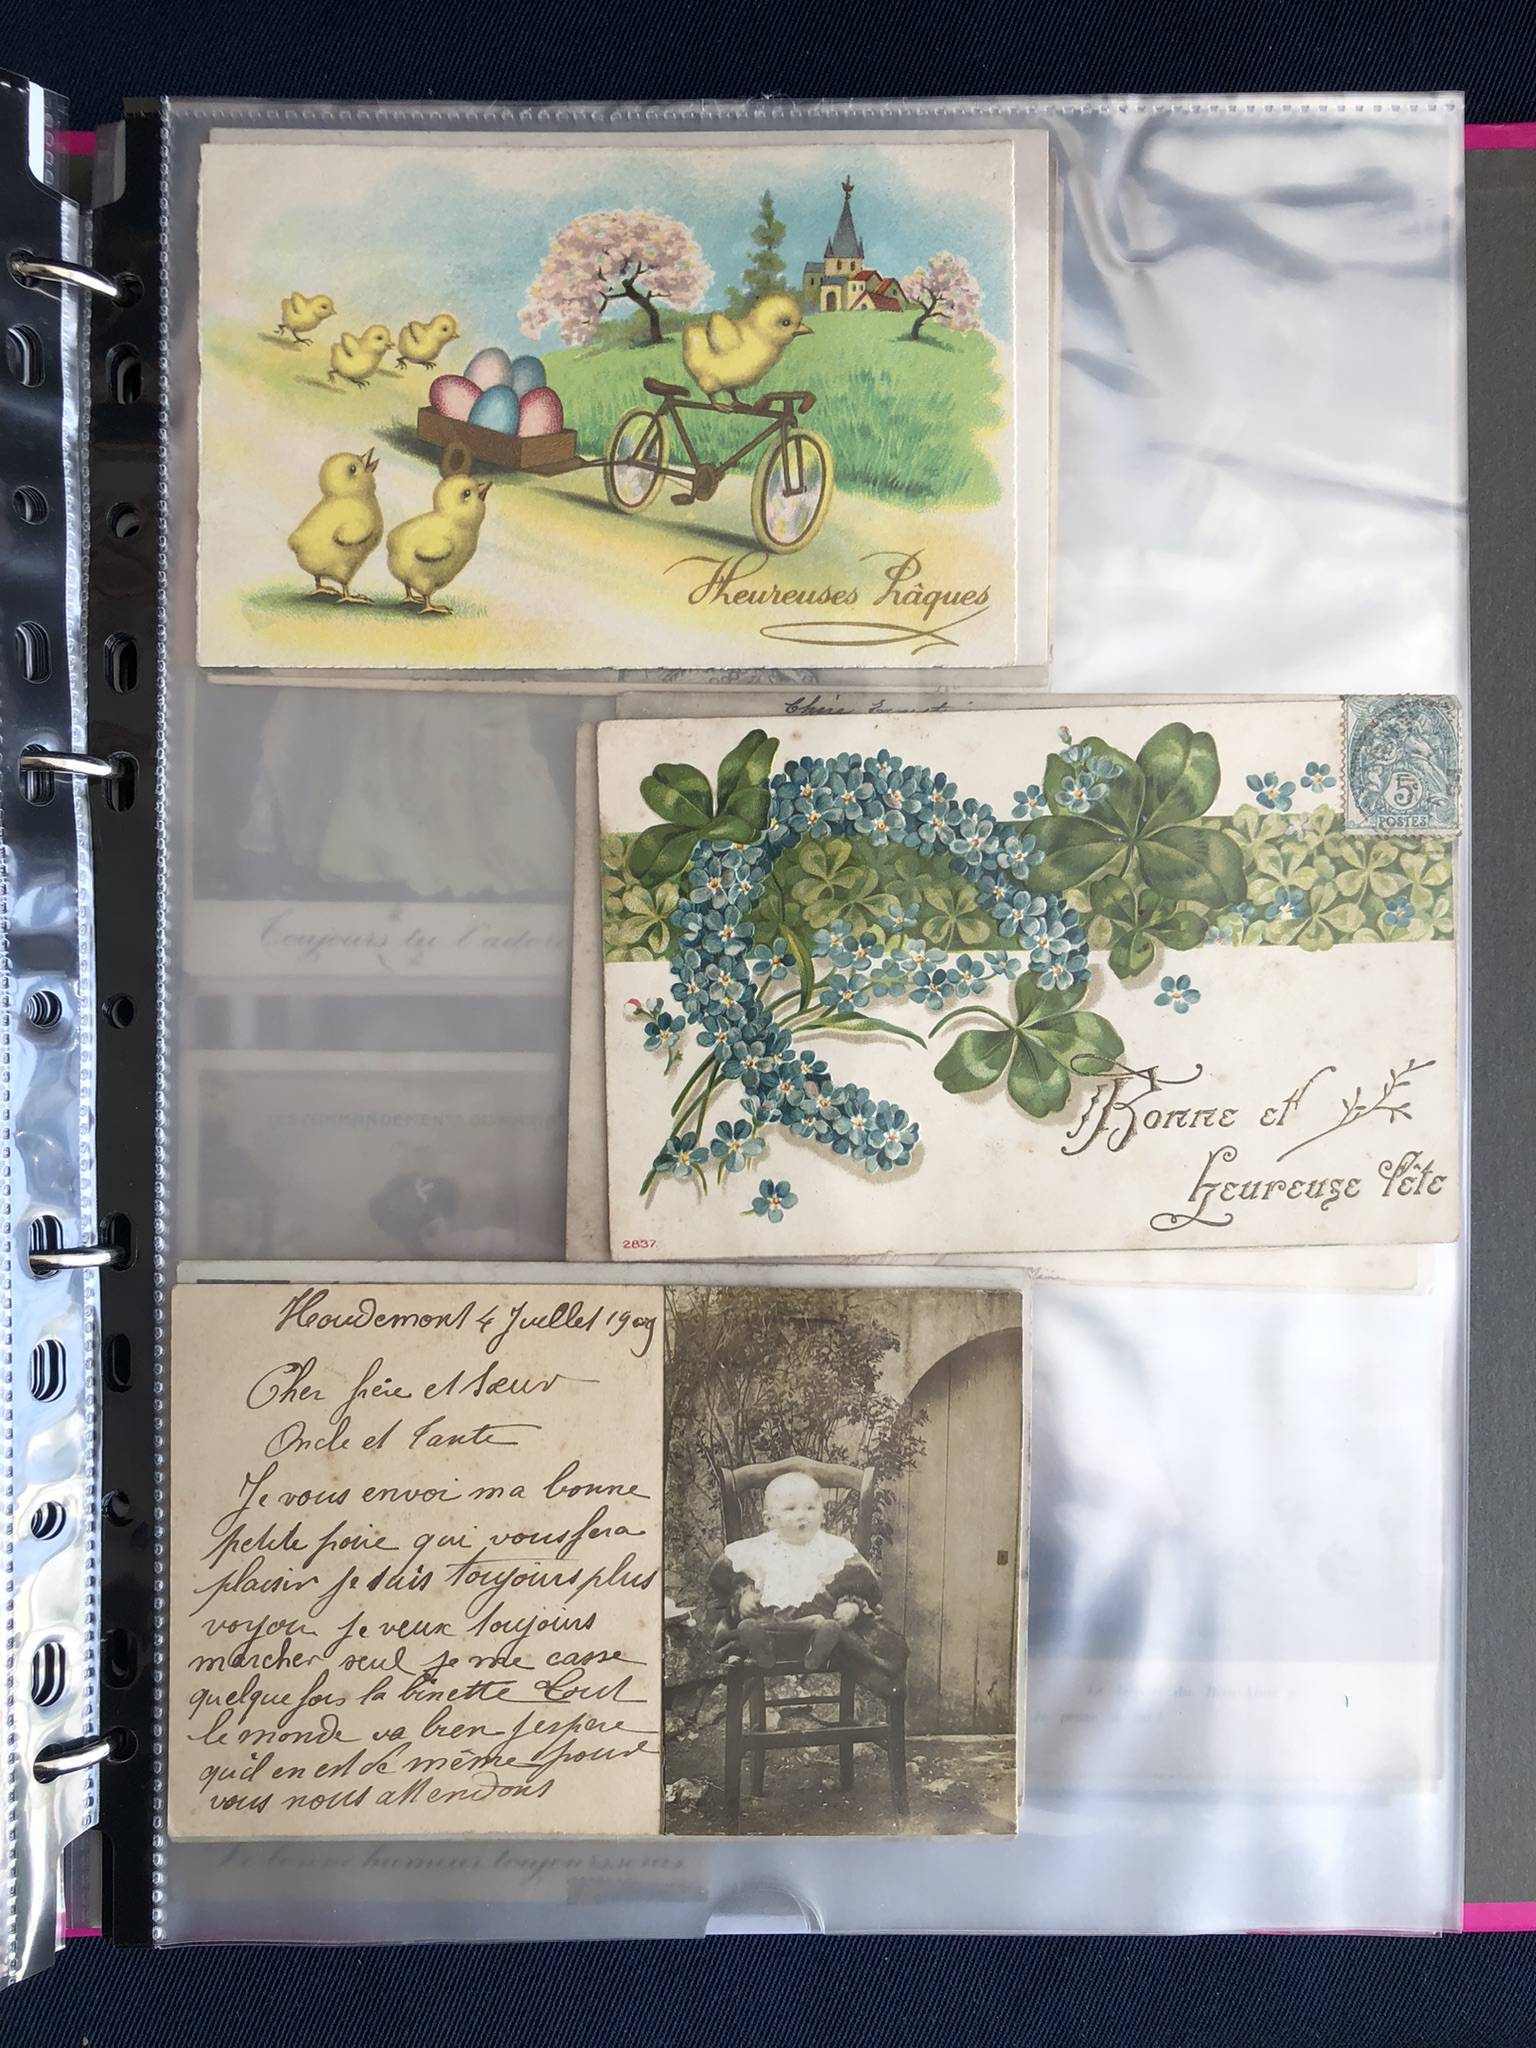 Heureuses Pâques
Chère
5c
POSTES
Bonne et
heureuse fête
2837
Toujours tu l'adore
Houdemont 4 Juillet 1909
Cher frère et Sœur
Oncle et Tante
Je vous envoi ma bonne
petite poire qui vous fera
plaisir je suis toujours plus
voyou je veux toujours
marcher seul je me casse
quelque fois la binette Tout
le monde va bien j'espère
qu'il en est de même pour
vous nous attendons